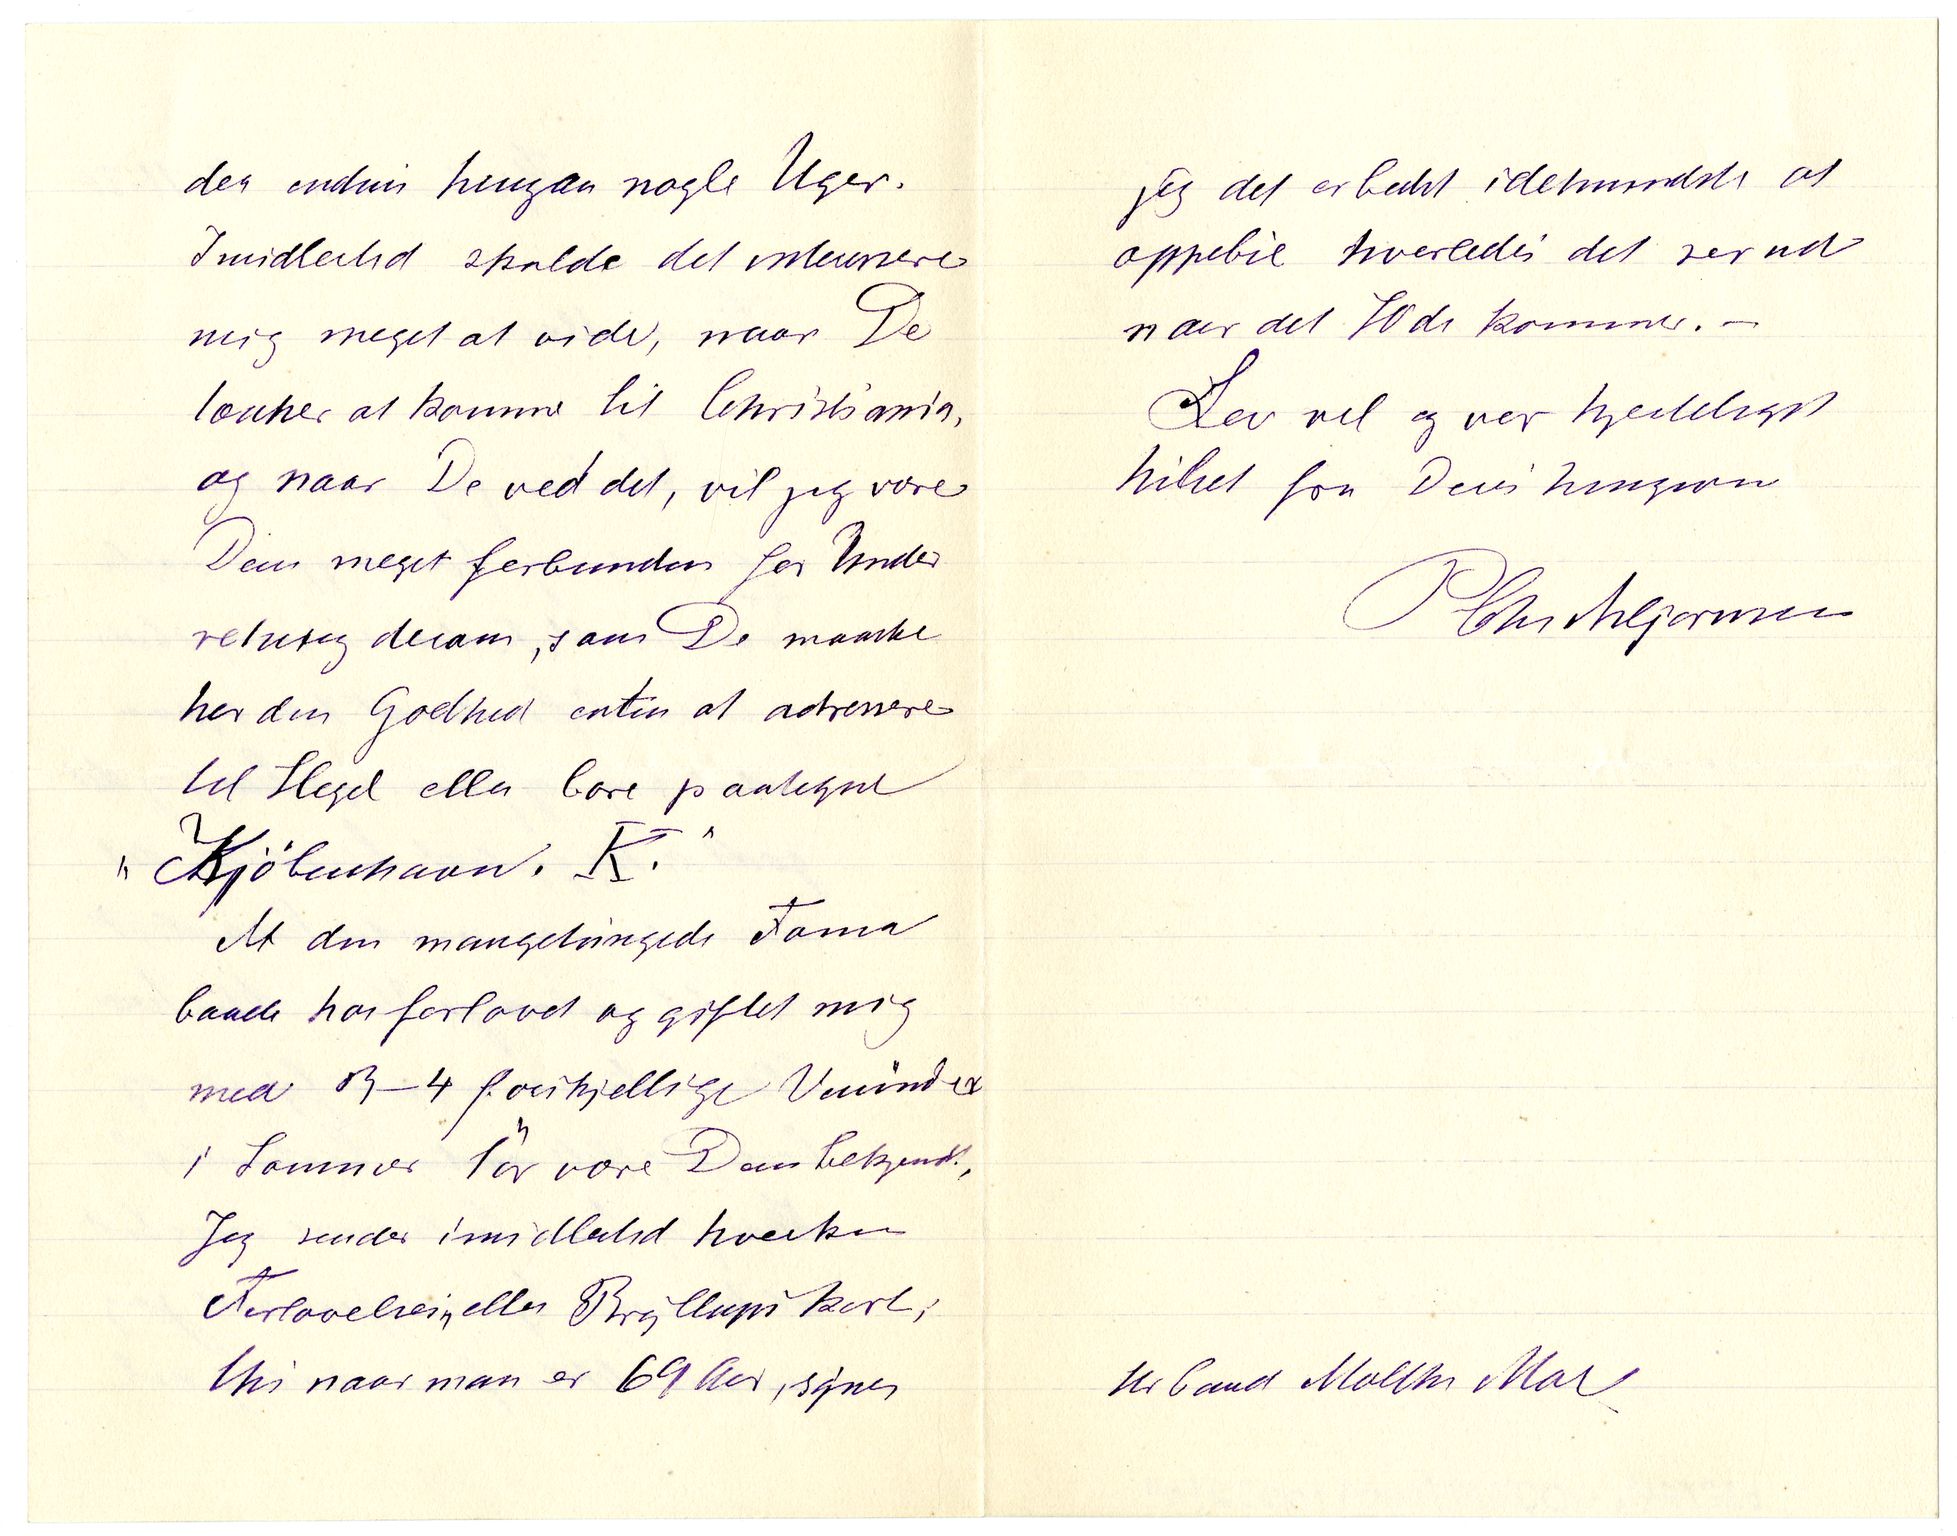 der endnu hengaa nogle Uger.
Imidlertid skulde det interessere
mig meget at vide, naar De
tænker at komme til Christiania,
og naar De ved det, vil jeg være
Dem meget forbunden for Under
retning derom, som De maaske
har den Godhed enten at adressere
til Hegel eller bare paategnet
"Kjöbenhavn. K."
At den mangetungede Fama
baade har forlovet og giftet mig
med 3-4 forskjellige Qvinder
i Sommer tör være Dem bekjendt,
Jeg sender imidlertid hverken
Forlovelses eller Bryllups kort;
thi naar man er 69 Aar, synes
jeg det er bedst idetmindste at
oppebie hvorledes det ser ud
naar det 70de kommer. —
Lev vel og vær hjerteligst
hilset fra Deres hengivne
P Chr Asbjørnsen
Hr cand Molthe Moe